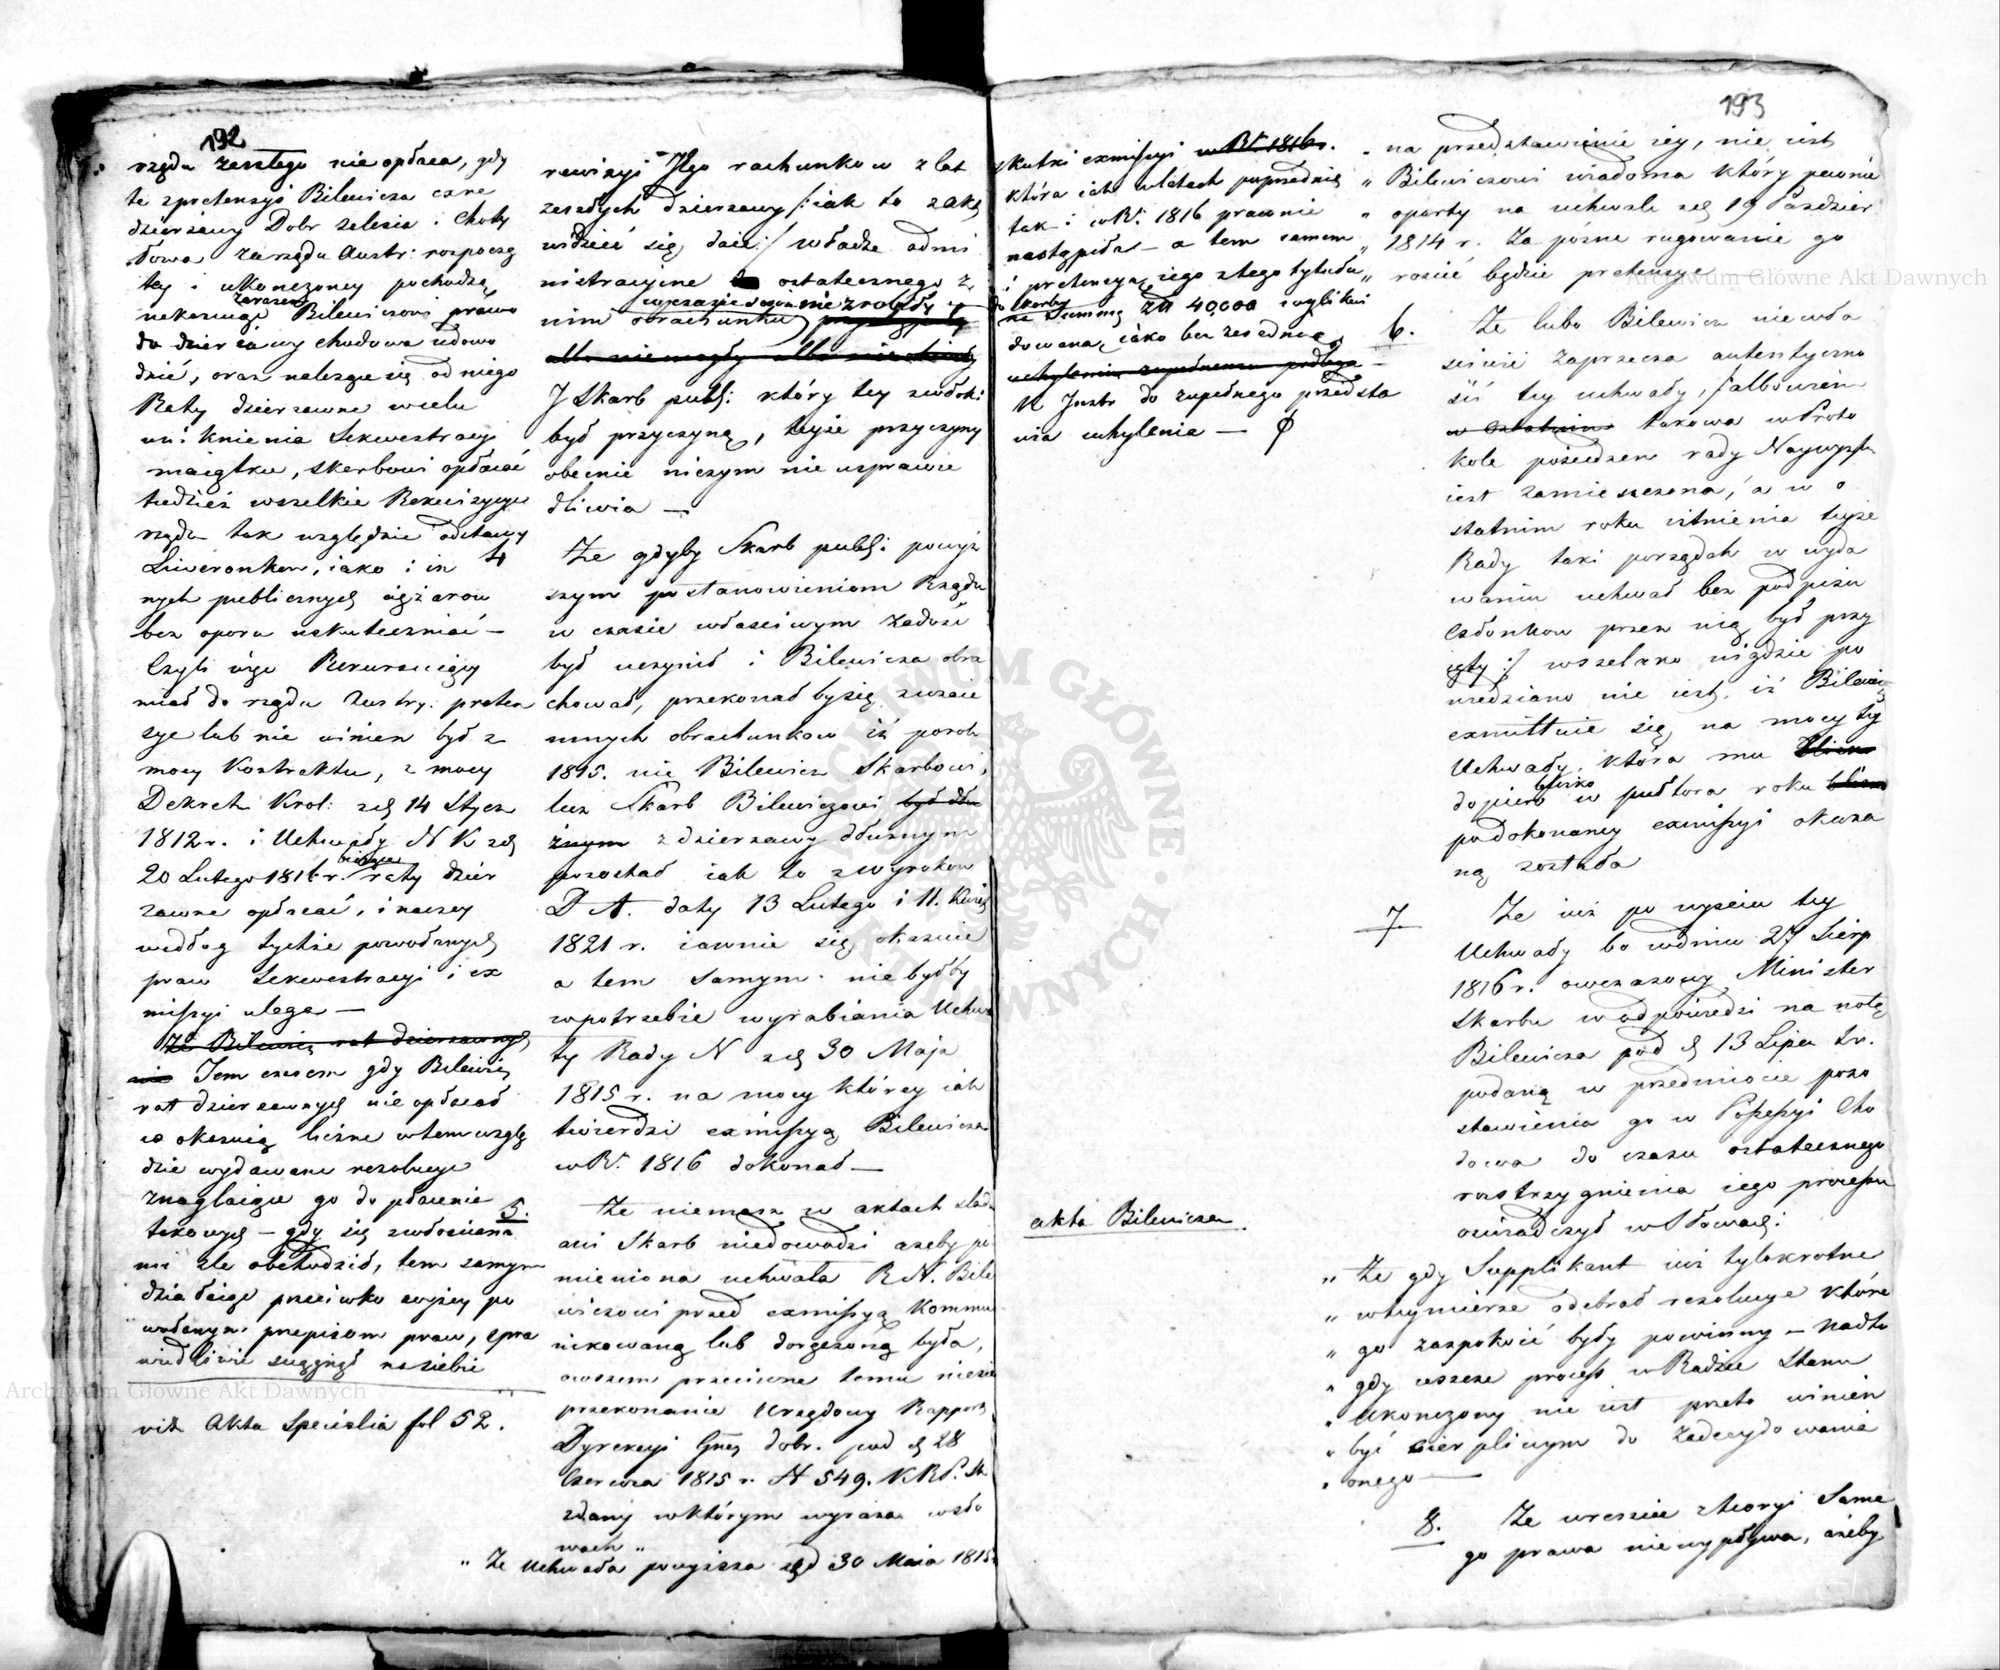 192
rządu zeszłego nie opłaca, gdy
te z pretensyi Bilewicza czne
dzierżawy Dobr Zelesia i Chody
Towa zarządu Austr: rozpoczę
tey i ukończoney pochodzą,
zarazem
nakazując Bilewiczowi prawo
do dzierżawy chodowa udowo
dnić, oraz należące się od niego
Raty dzierzawne wcelu
uni knienia Sekwestracyi
maiątku, skarbowi opłacać
tudzież wszelkie Rekwizycye
rządu tak względnie odstawy
Liwerunkow, iako i in
nych publicznych ciężarow
bez oporu uskuteczniać —
Czyli więc Rekurruiący
miał do rządu Austry: preten
sye lub nie winien był z
mocy Kontraktu, z mocy
Dekretu Krol: z d. 14 Stycz
1812 r. i Uchwały N K z d.
20 Lutego 1816 r. raty dzier
bieżące
zawne opłacać, inaczey
według tychże powołanych
praw Sekwestracyi i ex
missyi ulega —
Że Bilewicz rat dzierzawnych
nie Tem czasem gdy Bilewicz
rat dzierzawnych nie opłacał
co okazuią liczne w tem wzglę
dzie wydawane rezolucye
znaglaiące go do płacenia
takowych — gdy się z włościana
mi źle obchodził, tem samym
działaiąc przeciwko wyżey po
wołanym przepisom praw, spra
wiedliwie sciągnął na siebie
vide Akta Specialia fol 52.
rewizyi Jego rachunkow z lat
zeszłych dzierzawy /: iak to z akt
widzieć się daie :/ władze admi
nistracyine do ostatecznego z
wczasie swoim nie zrobiły
nim obrachunku przystąpiły
albo niemogły albo nie chciały
I Skarb publ: który tey zwłoki
był przyczyną, teyże przyczyny
obecnie niczym nie usprawie
dliwia —
4 Że gdyby Skarb publ: powyż
szym postanowieniom Rządu
w czasie właściwym zadość
był uczynił i Bilewicza obra
chował, przekonałby się zwzaie
mnych obrachunkow iż po rok
1815. nie Bilewicz Skarbowi,
lecz Skarb Bilewiczowi był dłu
żnym z dzierzawy dłużnym
pozostał iak to z wyrokow
D A. daty 13 Lutego i 11. Kwie
1821 r. iawnie się okazuie
a tem samym nie byłby
w potrzebie wyrabiania Uchwa
ły Rady N z d. 30 Maja
1815 r. na mocy którey iak
twierdzi exmissyą Bilewicza
w R. 1816 dokonał —
5. Że niemasz w aktach śladu
ani Skarb niedowodzi azeby po
mieniona uchwała R N. Bile
wiczowi przed exmissyą kommu
nikowaną lub doręczoną była,
owszem przeciwne temu niesie
przekonanie Urzędowy Rapport
Dyrekcyi Gney dobr. pod d. 28
Czerwca 1815 r. N 549. K R P. Sk
zdany w którym wyraża w sło
wach „
„ Że Uchwała powyższa z d 30 Maia 1815
193
skutki exmissyi w R. 1816 r.
która iak w latach poprzednich
tak i w R. 1816 prawnie
nastąpiła — a tem samem
i pretensya iego z tego tytułu
do Skarbu
na Summę Zł 40,000 wylikwi
dowana, iako bezzasadna,
uchylenia zupełnemu podlega —
K Instr do zupełnego przedsta
wia uchylenia — ϕ
akta Bilewicza.
„ na przedstawienie iey, nie iest
„ Bilewiczowi wiadoma który pewnie
„ oparty na uchwale z d. 19 Pazdzier
„ 1814 r. za pózne rugowanie go
„ roscić będzie pretensye
6. Że lubo Bilewicz niewła
sciwie zaprzecza autentyczno
ści tey uchwały, /: albowiem
w ostatnim takowa w Proto
kole posiedzen rady Naywyższ
iest zamieszczona, a w o
statnim roku istnienia teyże
Rady taki porządek w wyda
waniu uchwał bez podpisu
Członkow przez nią był przy
ięty :/ wszelako nigdzie po
wiedziano nie iest, iż Bilewicz
exmittuie się na mocy tey
Uchwały, która mu blisko
blisko
dopiero w pułtora roku blisko
po dokonaney exmissyi okaza
ną została
7 Że iuż po wyściu tey
Uchwały bo wdniu 27 Sierp
1816 r. owczasowy Minister
Skarbu w odpowiedzi na notę
Bilewicza pod d. 13 Lipca t.r.
podaną w przedmiocie pozo
stawienia go w Possessyi Cho
dowa do czasu ostatecznego
rozstrzygnienia iego processu
oświadczył w Słowach:
„ Że gdy Supplikant iuż tylokrotne
„ w tey mierze odebrał rezolucye które
„ go zaspokoić były powinny — nadto
„ gdy ieszcze process w Radzie Stanu
„ ukończony nie iest przeto winien
„ być cierpliwym do zadecydowania
„ onego —
8. Że wreszcie z teoryi Same
go prawa niewypływa, ażeby